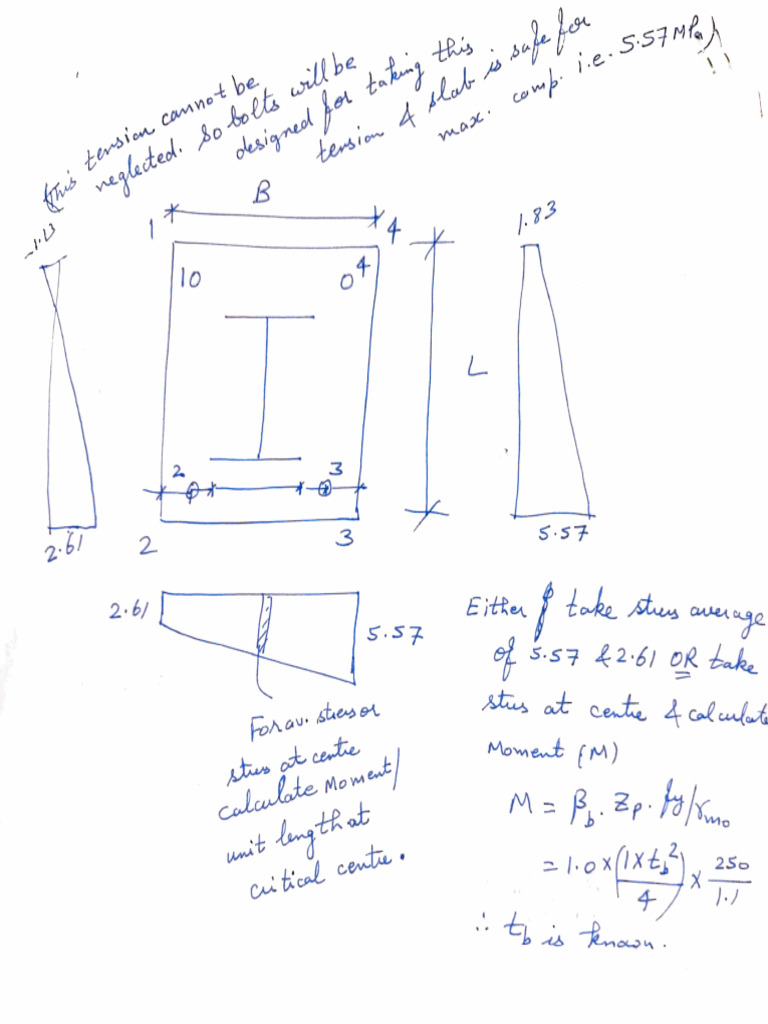 (This tension cannot be
neglected. So bolts will be
designed for taking this
tension & slab is safe for
max. comp. i.e. 5.57 MPa)
!!
B
1
4
-1.13
1.83
10
0 4
L
2
3
2.61
2
3
5.57
2.61
5.57
For av. stress or
stress at centre
calculate Moment/
unit length at
critical centre.
Either take stress average
of 5.57 & 2.61 OR take
stress at centre & calculate
Moment (M)
M = βb. Zp. fy/γmo
= 1.0 × (1×tb²/4) × 250/1.1
∴ tb is known.